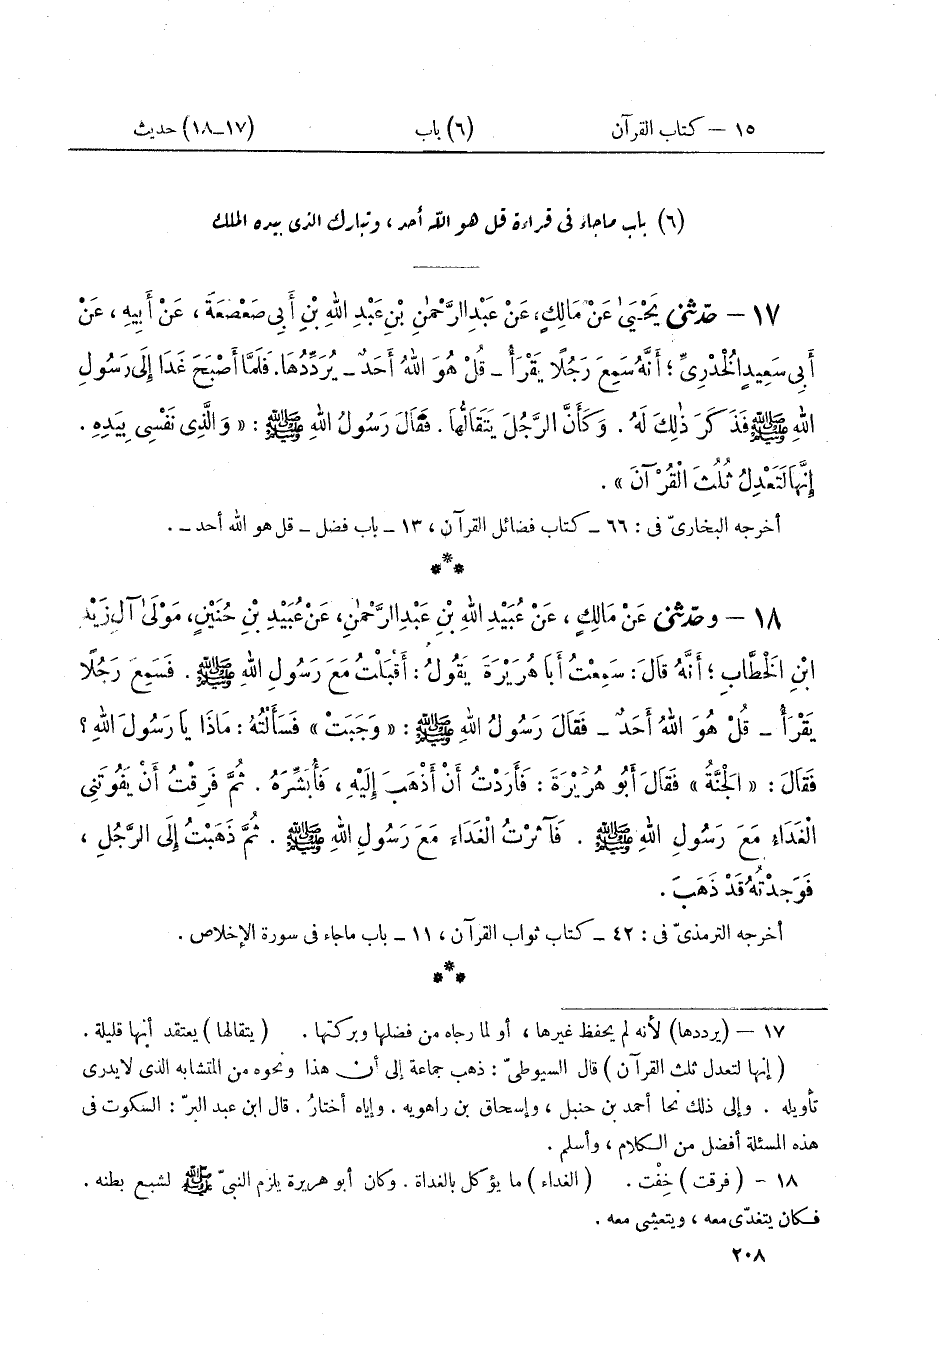 ١٥ – كتاب القرآن (٦) باب (١٧–١٨) حديث
(٦) باب ماجاء فى قراءة قل هو الله أحد ، وتبارك الذى بيده الملك
١٧ – حَدَّثَنِى يَحْيَىٰ عَنْ مَالِكٍ، عَنْ عَبْدِ الرَّحْمٰنِ بْنِ عَبْدِ اللهِ بْنِ أَبِى صَعْصَعَةَ ، عَنْ أَبِيهِ ، عَنْ
أَبِى سَعِيدٍ الْخُدْرِىِّ ؛ أَنَّهُ سَمِعَ رَجُلًا يَقْرَأُ – قُلْ هُوَ اللهُ أَحَدٌ – يُرَدِّدُهَا. فَلَمَّا أَصْبَحَ غَدَا إِلَى رَسُولِ
اللهِ ﷺ فَذَكَرَ ذٰلِكَ لَهُ . وَكَأَنَّ الرَّجُلَ يَتَقَالُّهَا . فَقَالَ رَسُولُ اللهِ ﷺ : « وَالَّذِى نَفْسِى بِيَدِهِ .
إِنَّهَا لَتَعْدِلُ ثُلُثَ الْقُرْآنَ » .
أخرجه البخارىّ فى : ٦٦ – كتاب فضائل القرآن ، ١٣ – باب فضل – قل هو الله أحد – .
***
١٨ – وحَدَّثَنِى عَنْ مَالِكٍ ، عَنْ عُبَيْدِ اللهِ بْنِ عَبْدِ الرَّحْمٰنِ، عَنْ عُبَيْدِ بْنِ حُنَيْنٍ، مَوْلَىٰ آلِ زَيْدِ
ابْنِ الْخَطَّابِ ؛ أَنَّهُ قَالَ: سَمِعْتُ أَبَا هُرَيْرَةَ يَقُولُ : أَقْبَلْتُ مَعَ رَسُولِ اللهِ ﷺ . فَسَمِعَ رَجُلًا
يَقْرَأُ – قُلْ هُوَ اللهُ أَحَدٌ – فَقَالَ رَسُولُ اللهِ ﷺ : « وَجَبَتْ » فَسَأَلْتُهُ : مَاذَا يَا رَسُولَ اللهِ ؟
فَقَالَ : « الْجَنَّةُ » فَقَالَ أَبُو هُرَيْرَةَ : فَأَرَدْتُ أَنْ أَذْهَبَ إِلَيْهِ ، فَأُبَشِّرَهُ . ثُمَّ فَرِقْتُ أَنْ يَفُوتَنِى
الْغَدَاءُ مَعَ رَسُولِ اللهِ ﷺ . فَآثَرْتُ الْغَدَاءَ مَعَ رَسُولِ اللهِ ﷺ . ثُمَّ ذَهَبْتُ إِلَى الرَّجُلِ ،
فَوَجَدْتُهُ قَدْ ذَهَبَ .
أخرجه الترمذىّ فى : ٤٢ – كتاب ثواب القرآن ، ١١ – باب ماجاء فى سورة الإخلاص .
***
١٧ – (يرددها) لأنه لم يحفظ غيرها ، أو لما رجاه من فضلها وبركتها . (يتقالها) يعتقد أنها قليلة .
(إنها لتعدل ثلث القرآن) قال السيوطىّ : ذهب جماعة إلى أن هذا ونحوه من المتشابه الذى لايدرى
تأويله . وإلى ذلك نحا أحمد بن حنبل ، وإسحاق بن راهويه . وإياه أختارُ . قال ابن عبد البرّ : السكوت فى
هذه المسئلة أفضل من الكلام ، وأسلم .
١٨ - (فرقت) خِفْت . (الغداء) ما يؤكل بالغداة . وكان أبو هريرة يلزم النبىّ ﷺ لشبع بطنه .
فكان يتغدّى معه ، ويتعشى معه .
٢٠٨